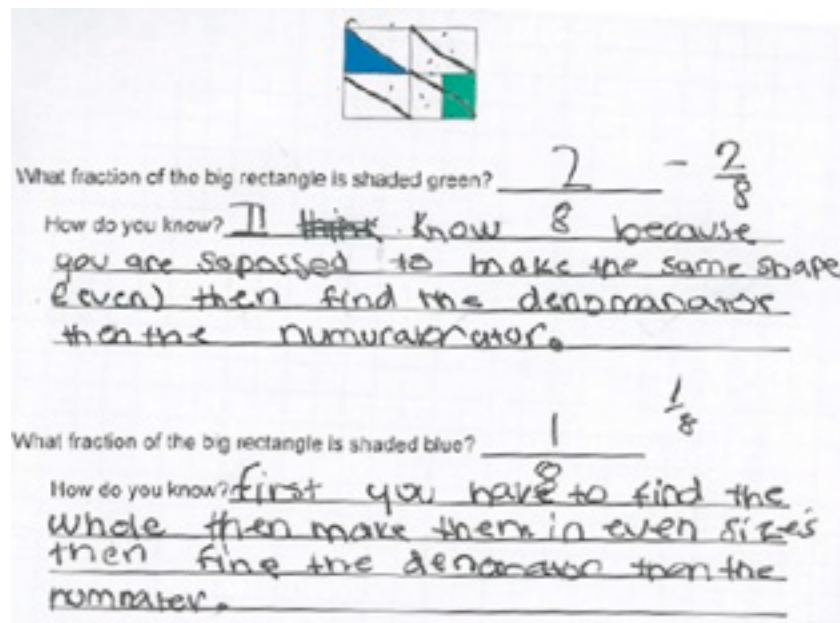 What fraction of the big rectangle is shaded green? 2/8 - 2/8
How do you know? I think know because
you are sopassed to make the same shape
(even) then find the denomanator
then the numuratorator.
What fraction of the big rectangle is shaded blue? 1/8 1/8
How do you know? first you have to find the
whole then make them in even sizes
then fine the denomator then the
numnater.